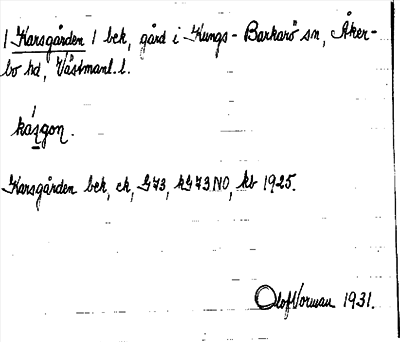 / Karsgården / bek, gård i Kungs-Barkarö sn, Åker-
bo hd, Västmanl. l.
kázgon.
Karsgården bek, ek, G73, kG73NO, kb 1925.
Olof Vorman 1931.